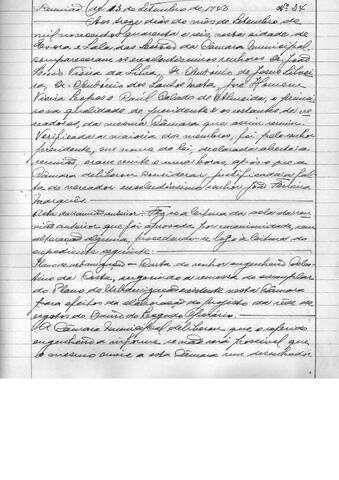 Reunião de 13 de Setembro de 1946 Nº 34
Aos treze dias do mês de Setembro de
mil novecentos quarenta e seis, nesta cidade de
Évora e Sala das Sessões da Câmara Municipal,
compareceram os excelentíssimos senhores Dr. João
Luís Vieira da Silva, Dr. António de Jesus Silvei-
ra, Dr. António dos Santos Mota, José Homem
Vieira e Raúl Calado de Almeida, o primei-
ro na qualidade de presidente e os restantes de ve-
readores, da mesma Câmara que assim reuniu.
Verificada a maioria dos membros, foi pelo senhor
presidente, em nome da lei, declarada aberta a
reunião, eram vinte e uma horas, após o que a
Câmara deliberou considerar justificada a fal-
ta do vereador excelentíssimo senhor João Ferreira
Marques.
Acta da reunião anterior: - Fez-se a leitura da acta da reu-
nião anterior que foi aprovada por unanimidade, sem
alteração alguma, procedendo-se logo à leitura do
expediente seguinte:
Plano de urbanização - Carta do senhor engenheiro
da Costa, sugerindo a remessa do exemplar
do Plano de Urbanização existente nesta Câmara
para efeitos de elaboração do projecto da rede de
esgotos do Bairro
A Câmara Municipal deliberou que o referido
engenheiro informe se não será possível que
o mesmo envie a esta Câmara um desenhador